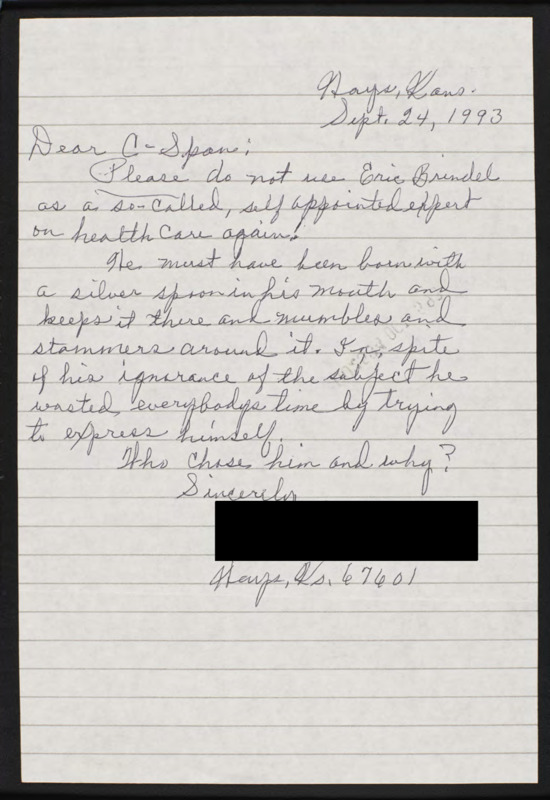 Hays, Kans.
Sept. 24, 1993
Dear C-Span:
Please do not use Eric Brindel
as a so-called, self appointed expert
on health care again!
He must have been born with
a silver spoon in his mouth and
keeps it there and mumbles and
stammers around it. In spite
of his ignorance of the subject he
wasted everybodys time by trying
to express himself.
Who chose him and why?
Sincerely
Hays, Ks. 67601